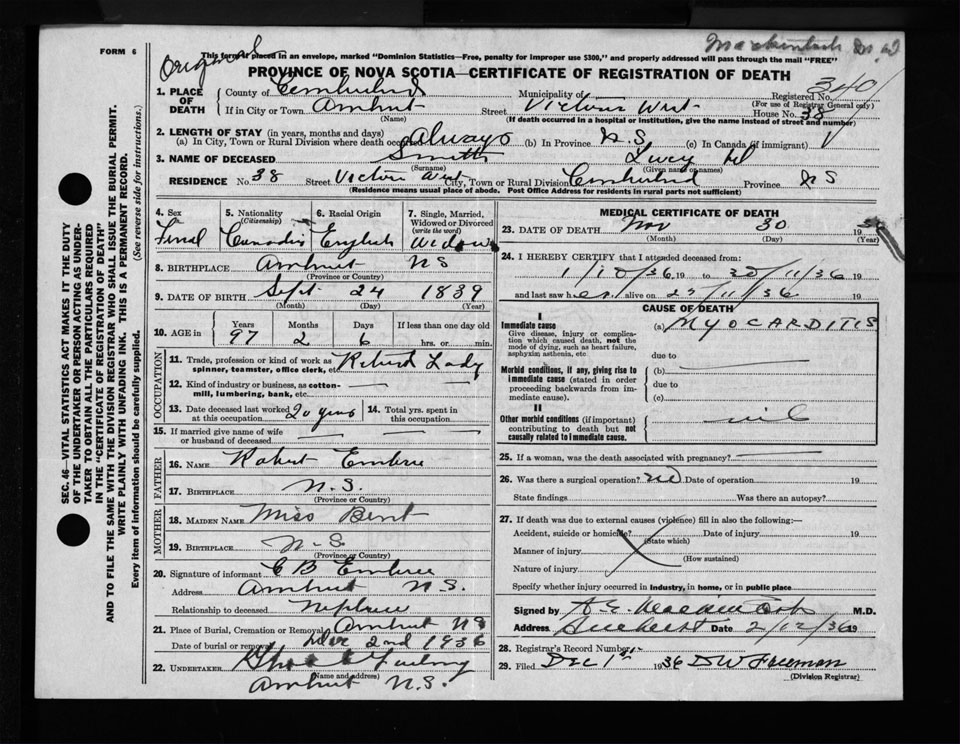 FORM 6
Original
Mackintosh M.D
This form if placed in an envelope, marked "Dominion Statistics—Free, penalty for improper use $300," and properly addressed will pass through the mail "FREE"
PROVINCE OF NOVA SCOTIA—CERTIFICATE OF REGISTRATION OF DEATH
340
1. PLACE OF DEATH
County of Cumberland Municipality of Registered No.
(For use of Registrar General only)
If in City or Town Amherst Street Victoria West House No. 38
(Name) (If death occurred in a hospital or institution, give the name instead of street and number)
2. LENGTH OF STAY (in years, months and days)
(a) In City, Town or Rural Division where death occurred Always (b) In Province N.S. (c) In Canada (if immigrant)
3. NAME OF DECEASED Smith Lucy
(Surname) (Given name or names)
RESIDENCE No. 38 Street Victoria West City, Town or Rural Division Cumberland Province NS
(Residence means usual place of abode. Post Office Address for residents in rural parts not sufficient)
4. Sex 5. Nationality (Citizenship) 6. Racial Origin 7. Single, Married, Widowed or Divorced (write the word)
Femal Canadian English Widow
8. BIRTHPLACE Amherst NS
(Province or Country)
9. DATE OF BIRTH Sept 24 1839
(Month) (Day) (Year)
10. AGE in Years Months Days If less than one day old
97 2 6 hrs. or min.
OCCUPATION
11. Trade, profession or kind of work as spinner, teamster, office clerk, etc. Retired Lady
12. Kind of industry or business, as cotton-mill, lumbering, bank, etc.
13. Date deceased last worked at this occupation 20 years 14. Total yrs. spent in this occupation
15. If married give name of wife or husband of deceased
FATHER
16. NAME Robert Embree
17. BIRTHPLACE N.S.
(Province or Country)
MOTHER
18. MAIDEN NAME Miss Bent
19. BIRTHPLACE N-S
(Province or Country)
20. Signature of informant C B Embree
Address Amherst N.S.
Relationship to deceased Nephew
21. Place of Burial, Cremation or Removal Amherst NS
Date of burial or removal Dec 2nd 1936
22. UNDERTAKER Furlong
(Name and address)
Amherst N.S.
MEDICAL CERTIFICATE OF DEATH
23. DATE OF DEATH Nov 30 19
(Month) (Day) (Year)
24. I HEREBY CERTIFY that I attended deceased from:
1/10/36 19 to 30/11/36 19
and last saw her alive on 27/11/36 19
CAUSE OF DEATH
I
Immediate cause (a) MYOCARDITIS
Give disease, injury or complication which caused death, not the mode of dying, such as heart failure, asphyxia, asthenia, etc
due to
Morbid conditions, if any, giving rise to immediate cause (stated in order proceeding backwards from immediate cause). (b)
due to
(c)
II
Other morbid conditions (if important) contributing to death but not causally related to immediate cause. nil
25. If a woman, was the death associated with pregnancy?
26. Was there a surgical operation? no Date of operation 19
State findings Was there an autopsy?
27. If death was due to external causes (violence) fill in also the following:—
Accident, suicide or homicide? Date of injury 19
(State which)
Manner of injury
(How sustained)
Nature of injury
Specify whether injury occurred in industry, in home, or in public place
Signed by A. E. Mackintosh M.D.
Address Amherst Date 2/12/36 19
28. Registrar's Record Number
29. Filed Dec 1st 1936 D W Freeman
(Division Registrar)
SEC. 46—VITAL STATISTICS ACT MAKES IT THE DUTY
OF THE UNDERTAKER OR PERSON ACTING AS UNDERTAKER TO OBTAIN ALL THE PARTICULARS REQUIRED
IN THE "CERTIFICATE OF REGISTRATION OF DEATH"
AND TO FILE THE SAME WITH THE DIVISION REGISTRAR WHO SHALL ISSUE THE BURIAL PERMIT.
WRITE PLAINLY WITH UNFADING INK. THIS IS A PERMANENT RECORD.
Every item of information should be carefully supplied. (See reverse side for instructions.)